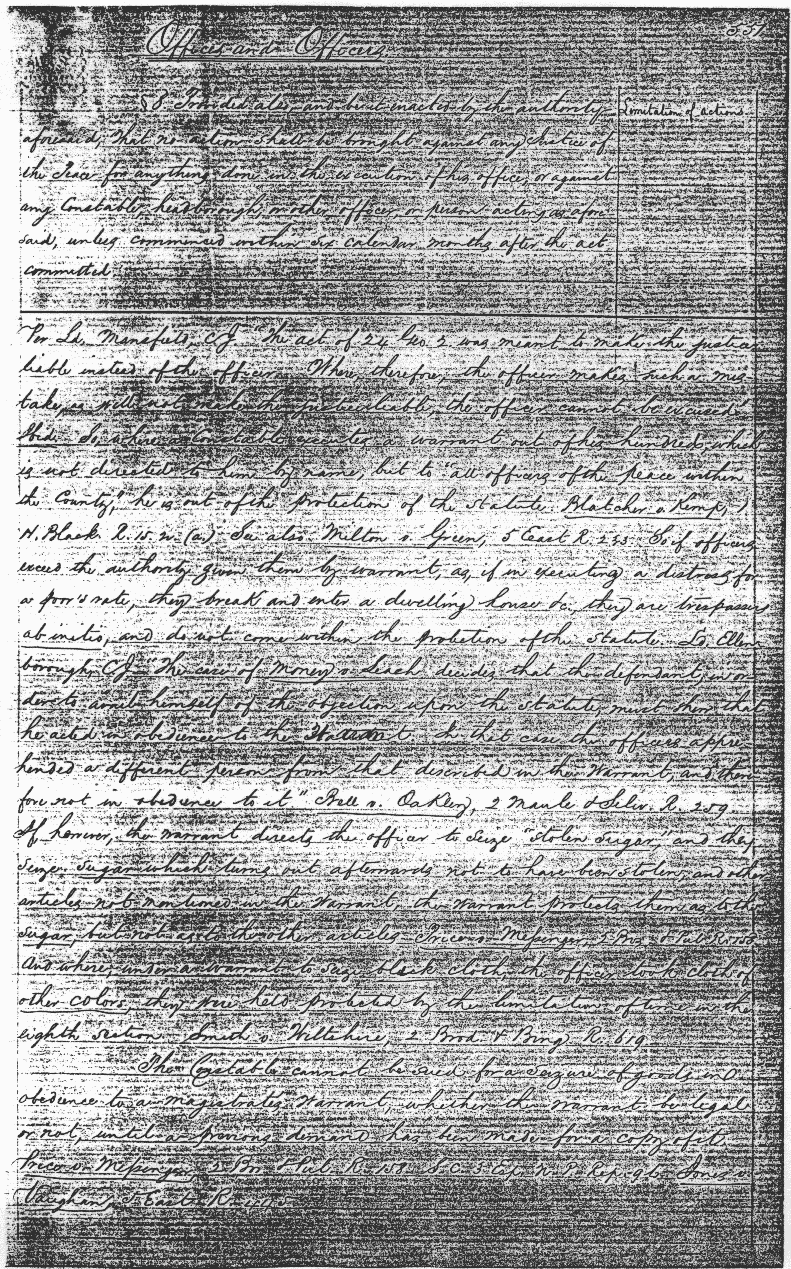 551
Offices and Officers
§ 8 Provided also, and be it enacted by the authority
Limitation of actions
aforesaid, that no action shall be brought against any Justice of
the Peace for anything done in the execution of his office, or against
any Constable, headborough, or other officer, or person acting as afore
said, unless commenced within six calendar months after the act
committed
Per Ld. Mansfield, C.J. "The act of 24 Geo. 2 was meant to make the justice
liable instead of the officer. Where, therefore, the officer makes such a mis-
take, as will not make the justice liable, the officer cannot be excused"
Ibid. So, where a Constable executes a warrant out of his hundred, which
is not directed to him by name, but to "all officers of the peace within
the County," he is out of the protection of the Statute. Blatcher v. Kemp, 1
H. Black. R. 15. n. (a.) See also Milton v. Green, 5 East R. 233. So if officers
exceed the authority given them by warrant, as, if in executing a distress for
a poor's rate, they break and enter a dwelling house &c., they are trespassers
ab initio, and do not come within the protection of the Statute. Ld. Ellen-
borough, C.J. "The case of Money v. Leach decides that the defendant, in or-
der to avail himself of the objection upon the Statute, must show that
he acted in obedience to the Warrant. In that case the officers appre-
hended a different person from that described in the Warrant, and there
fore not in obedience to it." Bell v. Oakley, 2 Maule & Selw. R. 259
If, however, the warrant directs the officer to seize "stolen Sugar," and they
seize Sugar which turns out afterwards not to have been stolen, and other
articles not mentioned in the Warrant, the warrant protects them as to the
Sugar, but not as to the other articles. Price v. Messenger, 2 Bos. & Pul. R. 158
And where, under a warrant to seize black cloth, the officer took cloth of
other colors, they were held protected by the limitation of time in the
eighth section. Smith v. Wiltshire, 2 Brod. & Bing. R. 619
The Constable cannot be sued for a seizure of goods in
obedience to a magistrate's Warrant, whether the warrant be legal
or not, until a previous demand has been made for a copy of it
Price v. Messenger, 2 Bos. & Pul. R. 158. S.C. 3 Esp. N.P. Rep. 96. Jones v.
Vaughan, 5 East R. 445